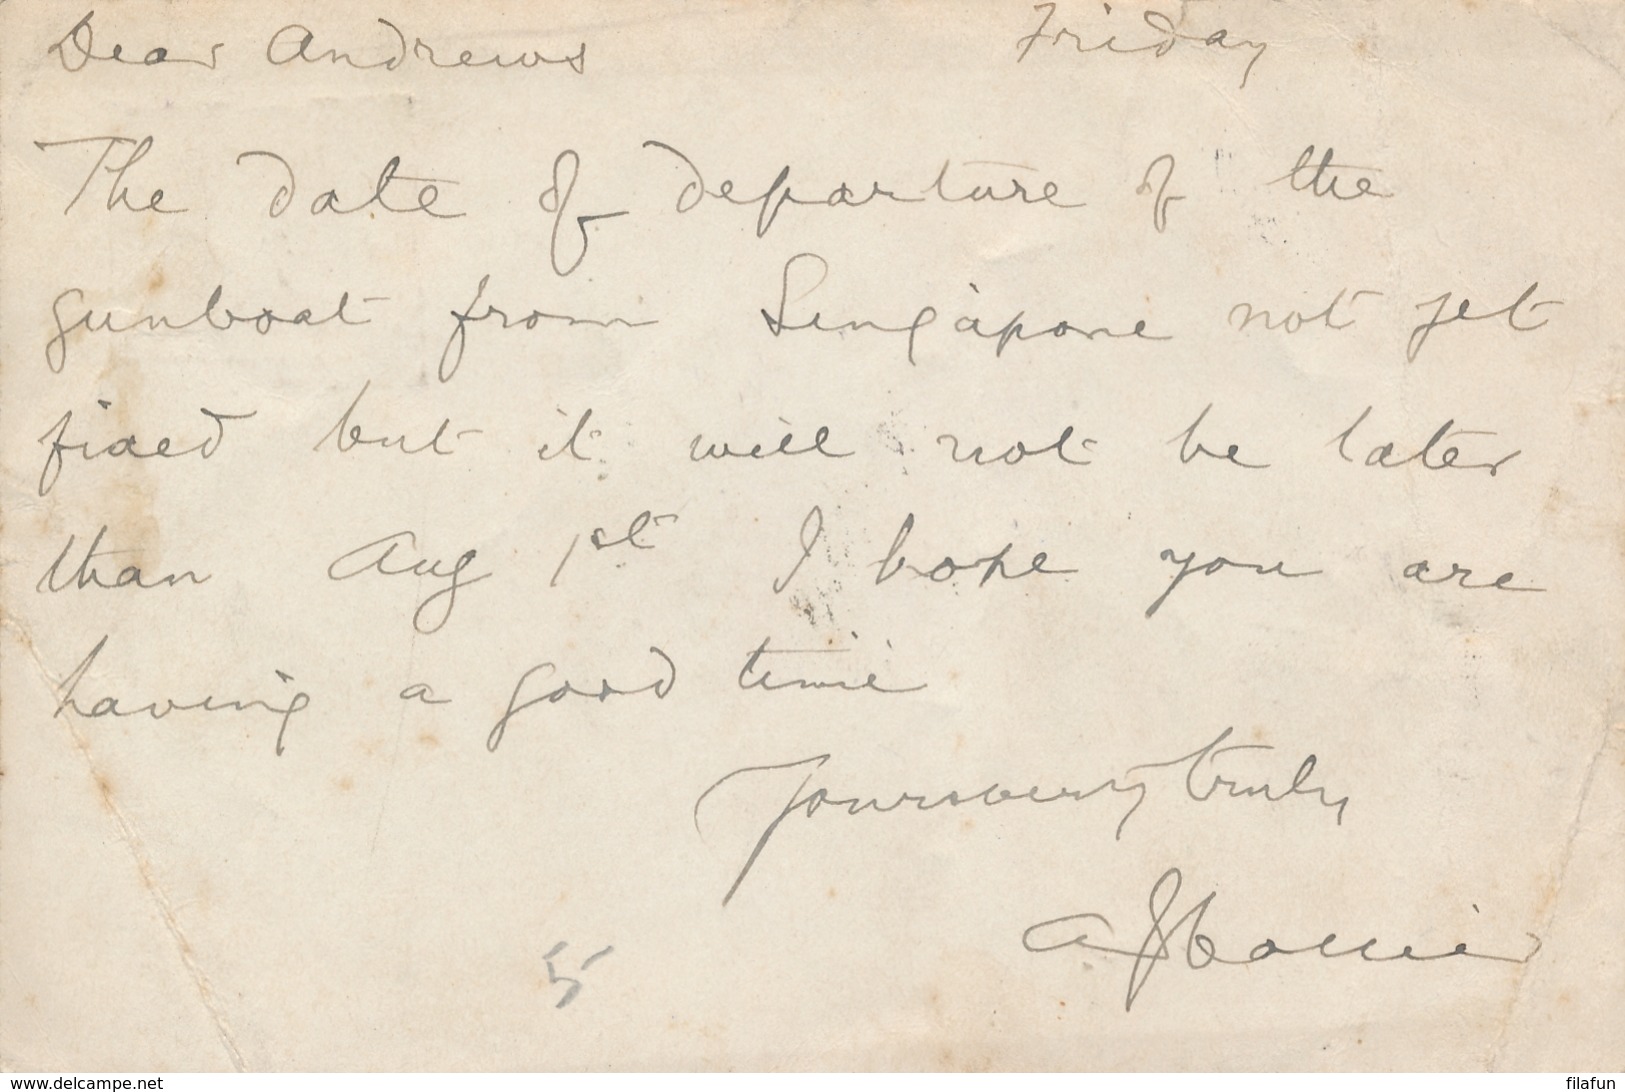 Dear Andrews Friday
The date of departure of the
gunboat from Singapore not yet
fixed but it will not be later
than Aug 1st I hope you are
having a good time
Yours very truly
5
www.delcampe.net filafun